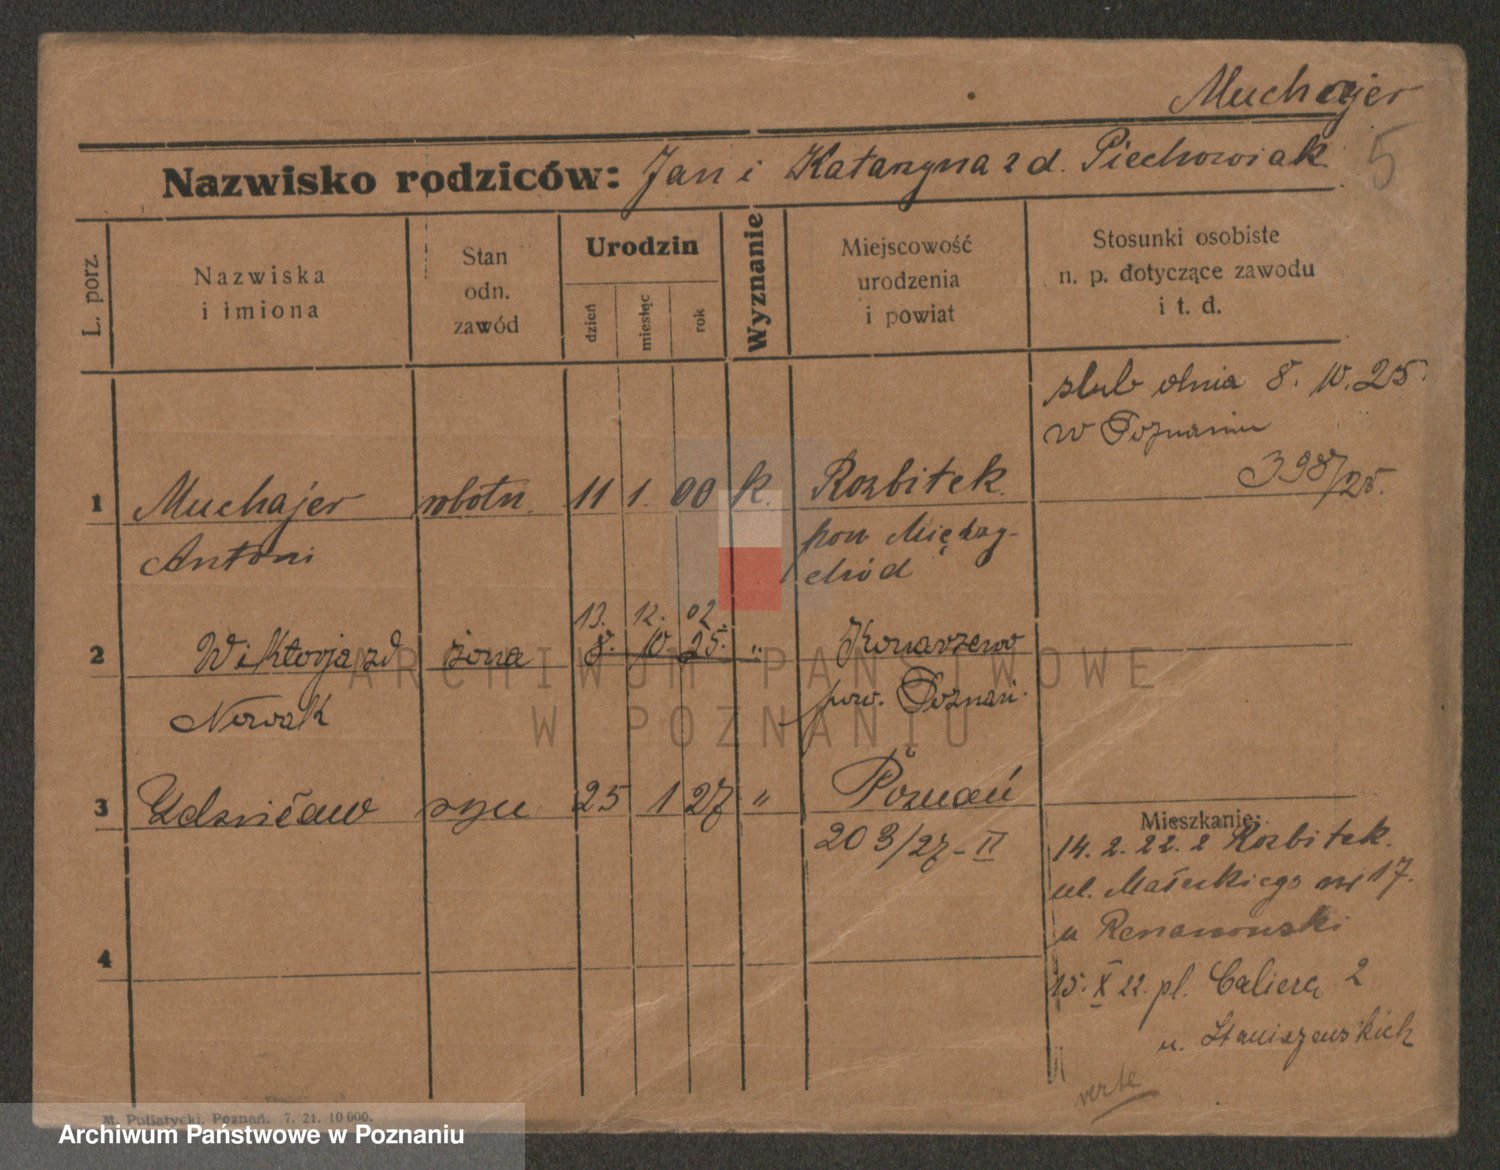 Muchajer
5
Nazwisko rodziców: Jan i Katarzyna z d. Piechowiak
L. porz.
Nazwiska
i imiona
Stan
odn.
zawód
Urodzin
dzień
miesiąc
rok
Wyznanie
Miejscowość
urodzenia
i powiat
Stosunki osobiste
n. p. dotyczące zawodu
i t. d.
ślub dnia 8. 10. 25.
w Poznaniu
398/25.
1 Muchajer robotn. 11 1. 00 k. Rozbitek
Antoni pow Między-
chód
13. 12. 02.
2 Wiktorja zd żona 8. 10. 25. " Konarzewo
Nowak pow. Poznań
3 Zdzisław syn 25 1 27 " Poznań
203/27-II
4
Mieszkanie:
14. 2. 22. z Rozbitek.
ul. Małeckiego nr 17.
u
15. X 22. pl. Caliera 2
u. Staniszewskich
verte
M. Putiatycki, Poznań. 7. 21. 10 000.
ARCHIWUM PAŃSTWOWE
W POZNANIU
Archiwum Państwowe w Poznaniu